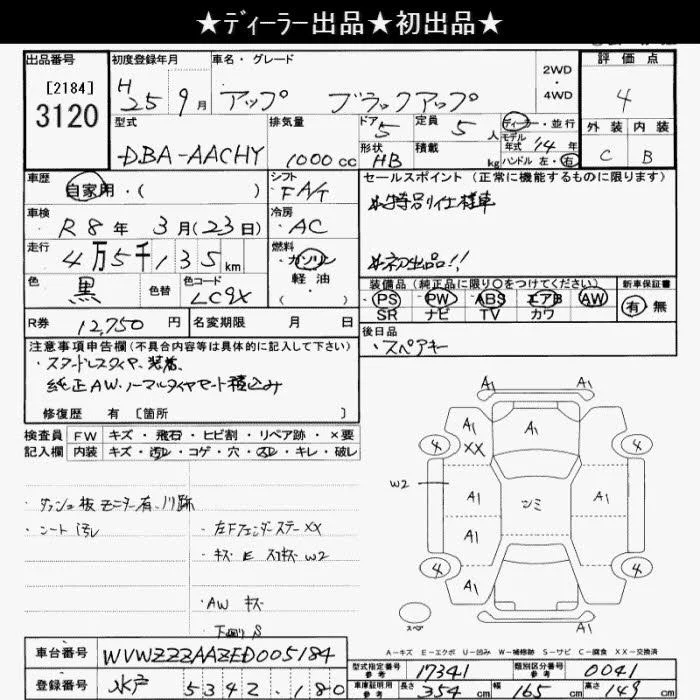 ★ディーラー出品★初出品★
出品番号
[2184]
3120
初度登録年月
H 25年 9月
車名・グレード
アップ ブラックアップ
2WD
・
4WD
評価点
4
外装 内装
C B
型式
DBA-AACHY
排気量
1000cc
ドア 5
形状 HB
定員 5人
積載 kg
ディーラー・並行
モデル年式 '14年
ハンドル 左・右
車歴
自家用・( )
シフト
FAT
車検
R8年 3月(23日)
冷房
AC
走行
4万5千135km
燃料
ガソリン
軽油
・( )
色
黒
色替
色コード
LC9X
R券 12,750円
名変期限 月 日
セールスポイント (正常に機能するものに限ります)
☆特別仕様車
☆初出品!!
装備品(純正品に限り○をつけてください)
PS PW ABS エアB AW
SR ナビ TV カワ
新車保証書
有・無
後日品
・スペアキー
注意事項申告欄(不具合内容等は具体的に記入して下さい)
・スタッドレスタイヤ、装着、
純正AW・ノーマルタイヤセット積込み
修復歴 有 [箇所 ]
検査員 FW キズ・飛石・ヒビ割・リペア跡・×要
記入欄 内装 キズ・汚レ・コゲ・穴・スレ・キレ・破レ
・ダッシュ板モニター有、ハリ跡
・シート汚レ
・左Fフェンダーステー XX
・キズ E W2
・AW キズ
下廻り S
A1 A1
A1
XX
A1
4 4
W2
A1
シミ
A1
A1
4 4
A1
A1
スペア
A-キズ E-エクボ U-凹み W-補修跡 S-サビ C-腐食 XX-交換済
車台番号 WVWZZZAAZED005184
登録番号 水戸 5342.180
型式指定番号 参考 17341
類別区分番号 参考 0041
車庫証明用 参考 長さ 354cm 幅 165cm 高さ 149cm